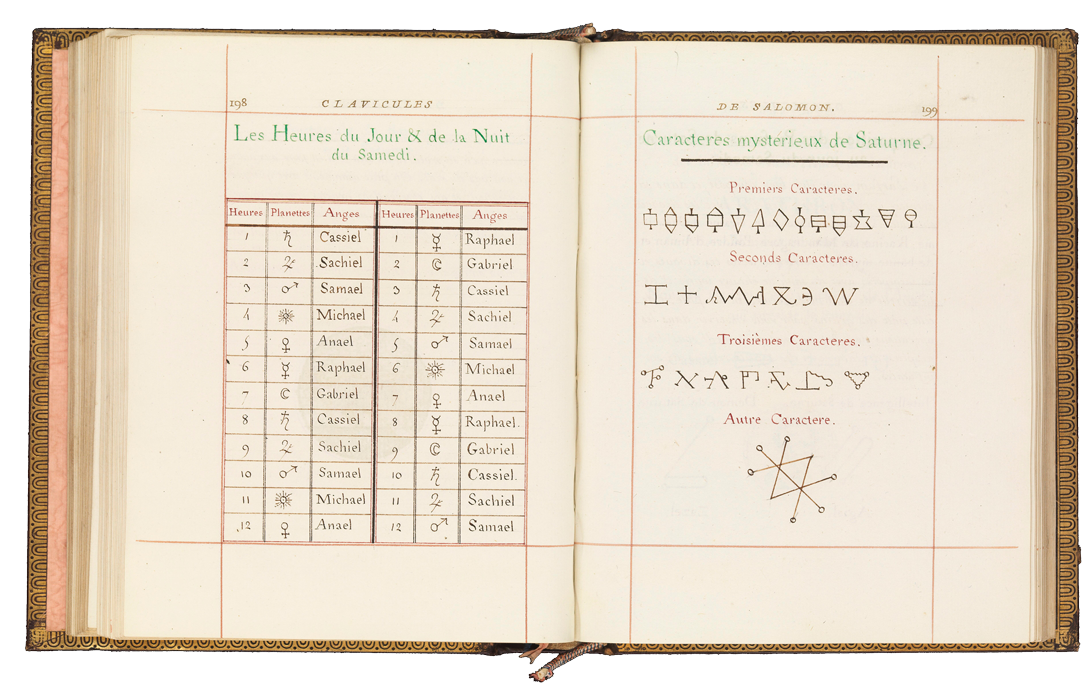 198 CLAVICULES
Les Heures du Jour & de la Nuit
du Samedi.
Heures Planettes Anges Heures Planettes Anges
1 ♄ Cassiel 1 ☿ Raphael
2 ♃ Sachiel 2 ☾ Gabriel
3 ♂ Samael 3 ♄ Cassiel
4 ☉ Michael 4 ♃ Sachiel
5 ♀ Anael 5 ♂ Samael
6 ☿ Raphael 6 ☉ Michael
7 ☾ Gabriel 7 ♀ Anael
8 ♄ Cassiel 8 ☿ Raphael.
9 ♃ Sachiel 9 ☾ Gabriel
10 ♂ Samael 10 ♄ Cassiel.
11 ☉ Michael 11 ♃ Sachiel
12 ♀ Anael 12 ♂ Samael
DE SALOMON. 199
Caracteres mysterieux de Saturne.
Premiers Caracteres.
Seconds Caracteres.
Troisièmes Caracteres.
Autre Caractere.